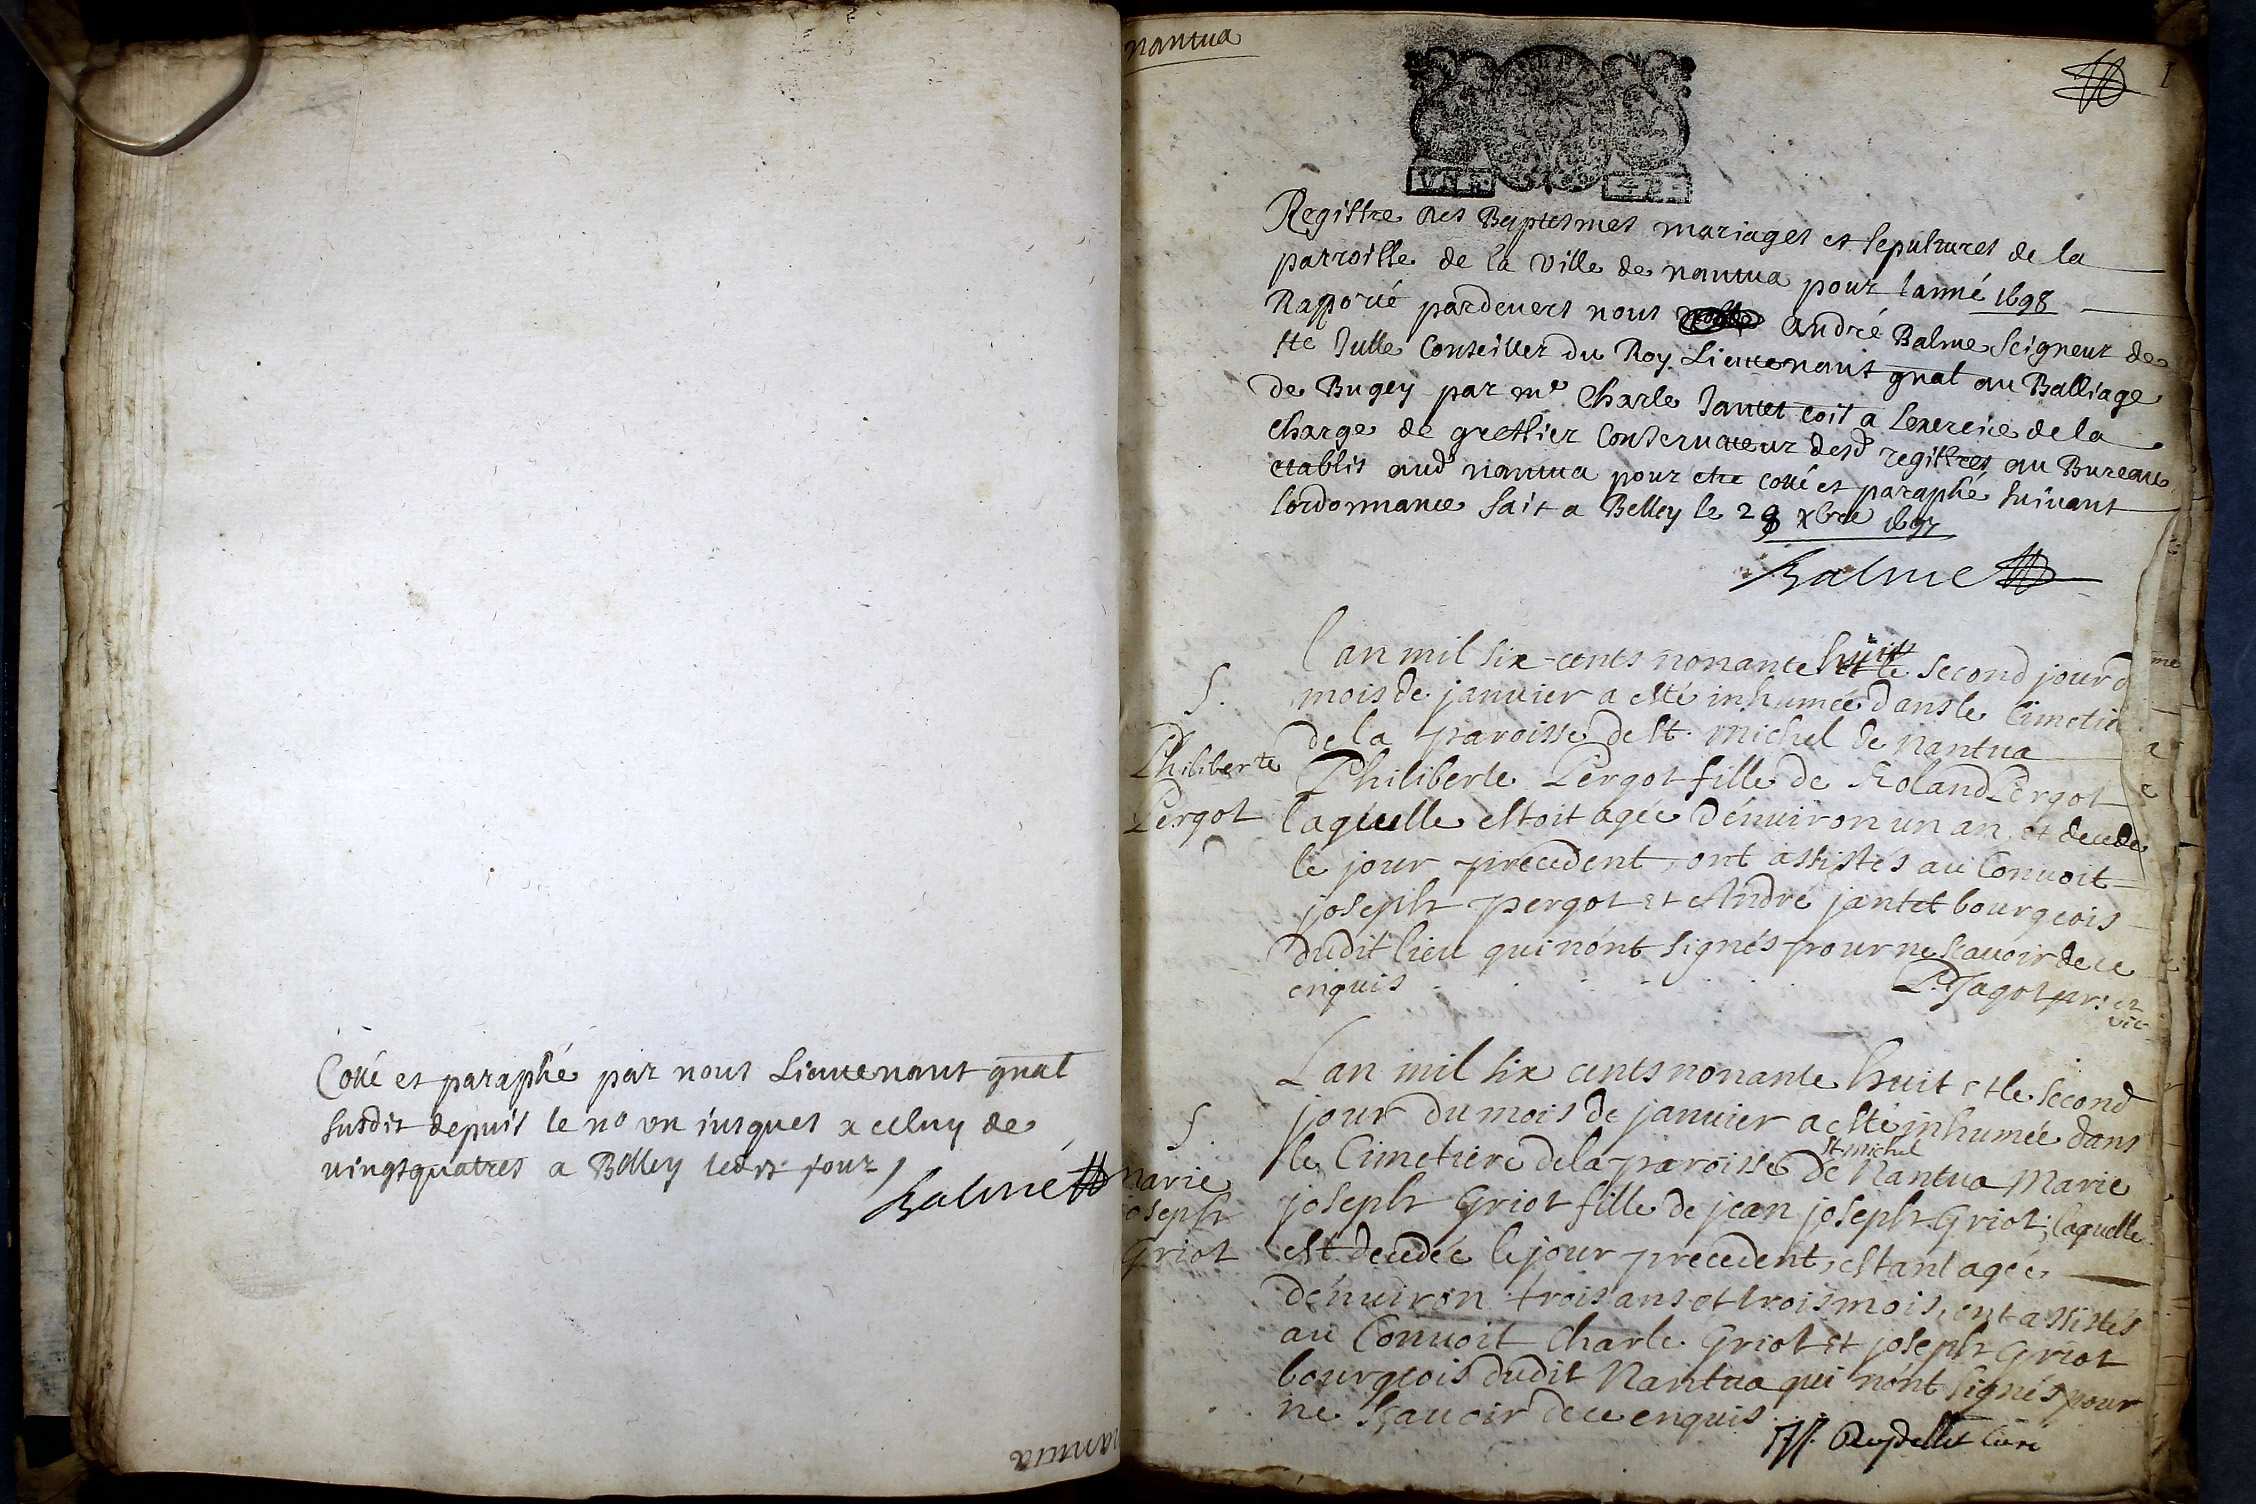 Cotté et paraphé par nous Lieutenant gnal
susdit depuis le no un jusques a celluy de
vingtquatres a Belley lesdt jour
Balme
nantua
nantua
1
Registre des Baptesmes mariages et sepultures de la
parroisse de la ville de nantua pour lanné 1698
Rapporté pardevers nous André Balme Seigneur de
ste Julle Conseiller du Roy Lieutenant gnal au Balliage
de Bugey par me Charle Jantet coīs a lexercice de la
charge de greffier Conservateur desd registres au Bureau
etablis aud nantua pour etre cotté et paraphé suivant
lordonnance fait a Belley le 29 xbre 1697
Balme
S.
Philiberte
Pergot
Lan mil six cents nonante huit le second jour d
mois de janvier a esté inhumée dans le Cimetie
de la paroisse de St. Michel de Nantua
Philiberte Pergot fille de Roland Pergot
laquelle estoit agée d'environ un an et decede
le jour precedent, ont assistés au Convoit
joseph pergot et André jantet bourgeois
dudit lieu qui n'ont signés pour ne scavoir de ce
enquis
P. Jagot pr. et
vic
S.
Marie
joseph
Griot
Lan mil six cents nonante huit et le second
jour du mois de janvier a esté inhumée dans
le Cimetiere de la paroisse de St michel Nantua Marie
joseph Griot fille de jean joseph Griot, laquelle
est decedée le jour precedent, estant agée
d'environ trois ans et trois mois, ont assistés
au Convoit Charle Griot et joseph Griot
bourgeois dudit Nantua qui n'ont signés pour
ne sçavoir de ce enquis
Reydellet Curé